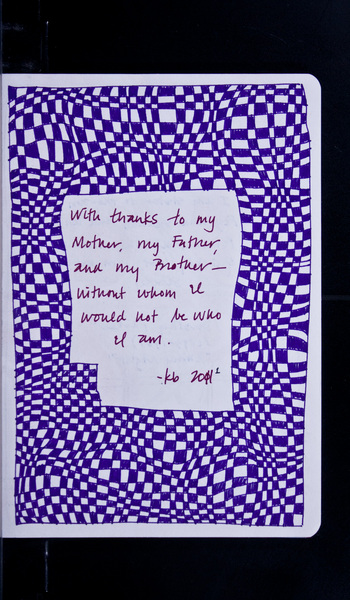 With thanks to my
Mother, my Father,
and my Brother—
without whom I
would not be who
I am.
-kb